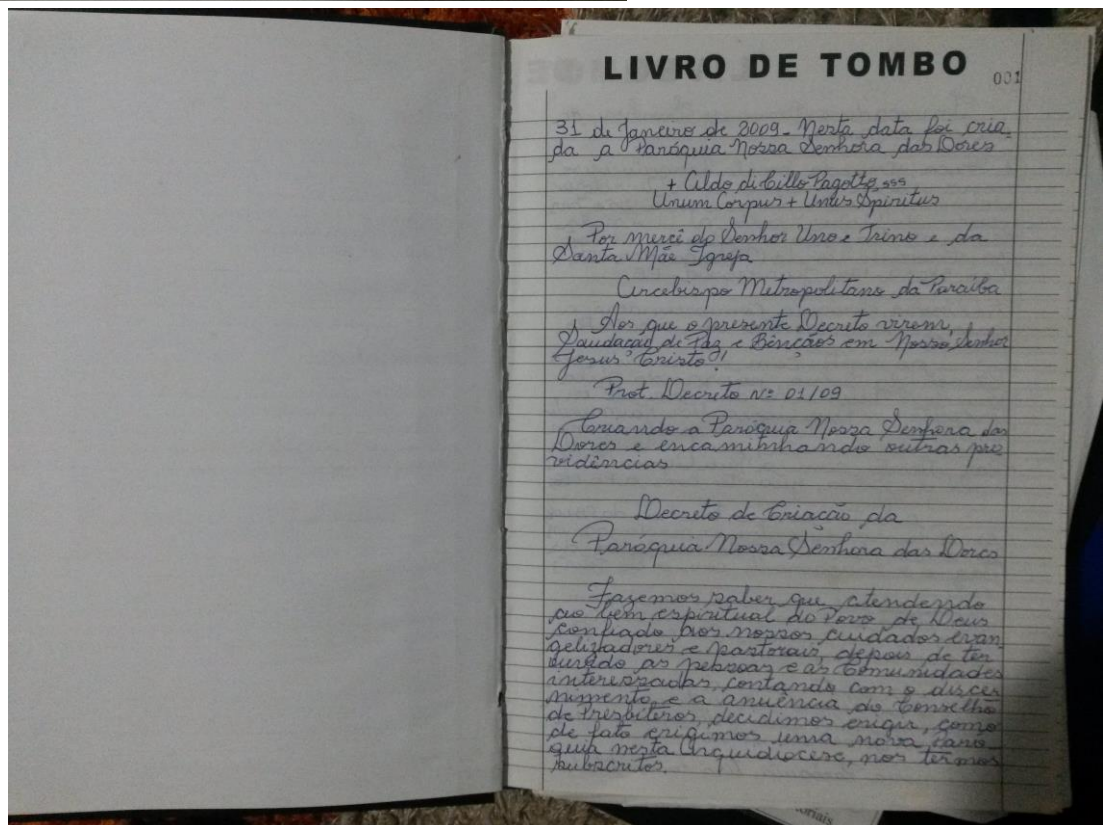 LIVRO DE TOMBO 001
31 de Janeiro de 2009. Nesta data foi cria
da a Paróquia Nossa Senhora das Dores
+ Aldo di Cillo Pagotto, sss
Unum Corpus + Unus Spiritus
Por mercê do Senhor Uno e Trino e da
Santa Mãe Igreja
Arcebispo Metropolitano da Paraíba
Aos que o presente Decreto virem,
Saudação de Paz e Bênçãos em Nosso Senhor
Jesus Cristo!
Prot. Decreto Nº 01/09
Criando a Paróquia Nossa Senhora das
Dores e encaminhando outras pro
vidências
Decreto de Criação da
Paróquia Nossa Senhora das Dores
Fazemos saber que atendendo
ao bem espiritual do Povo de Deus
confiado aos nossos cuidados evan
gelizadores e pastorais, depois de ter
ouvido as pessoas e as comunidades
interessadas, contando com o discer
nimento e a anuência do Conselho
de Presbíteros, decidimos erigir, como
de fato erigimos uma nova paró
quia nesta Arquidiocese, nos termos
subscritos.